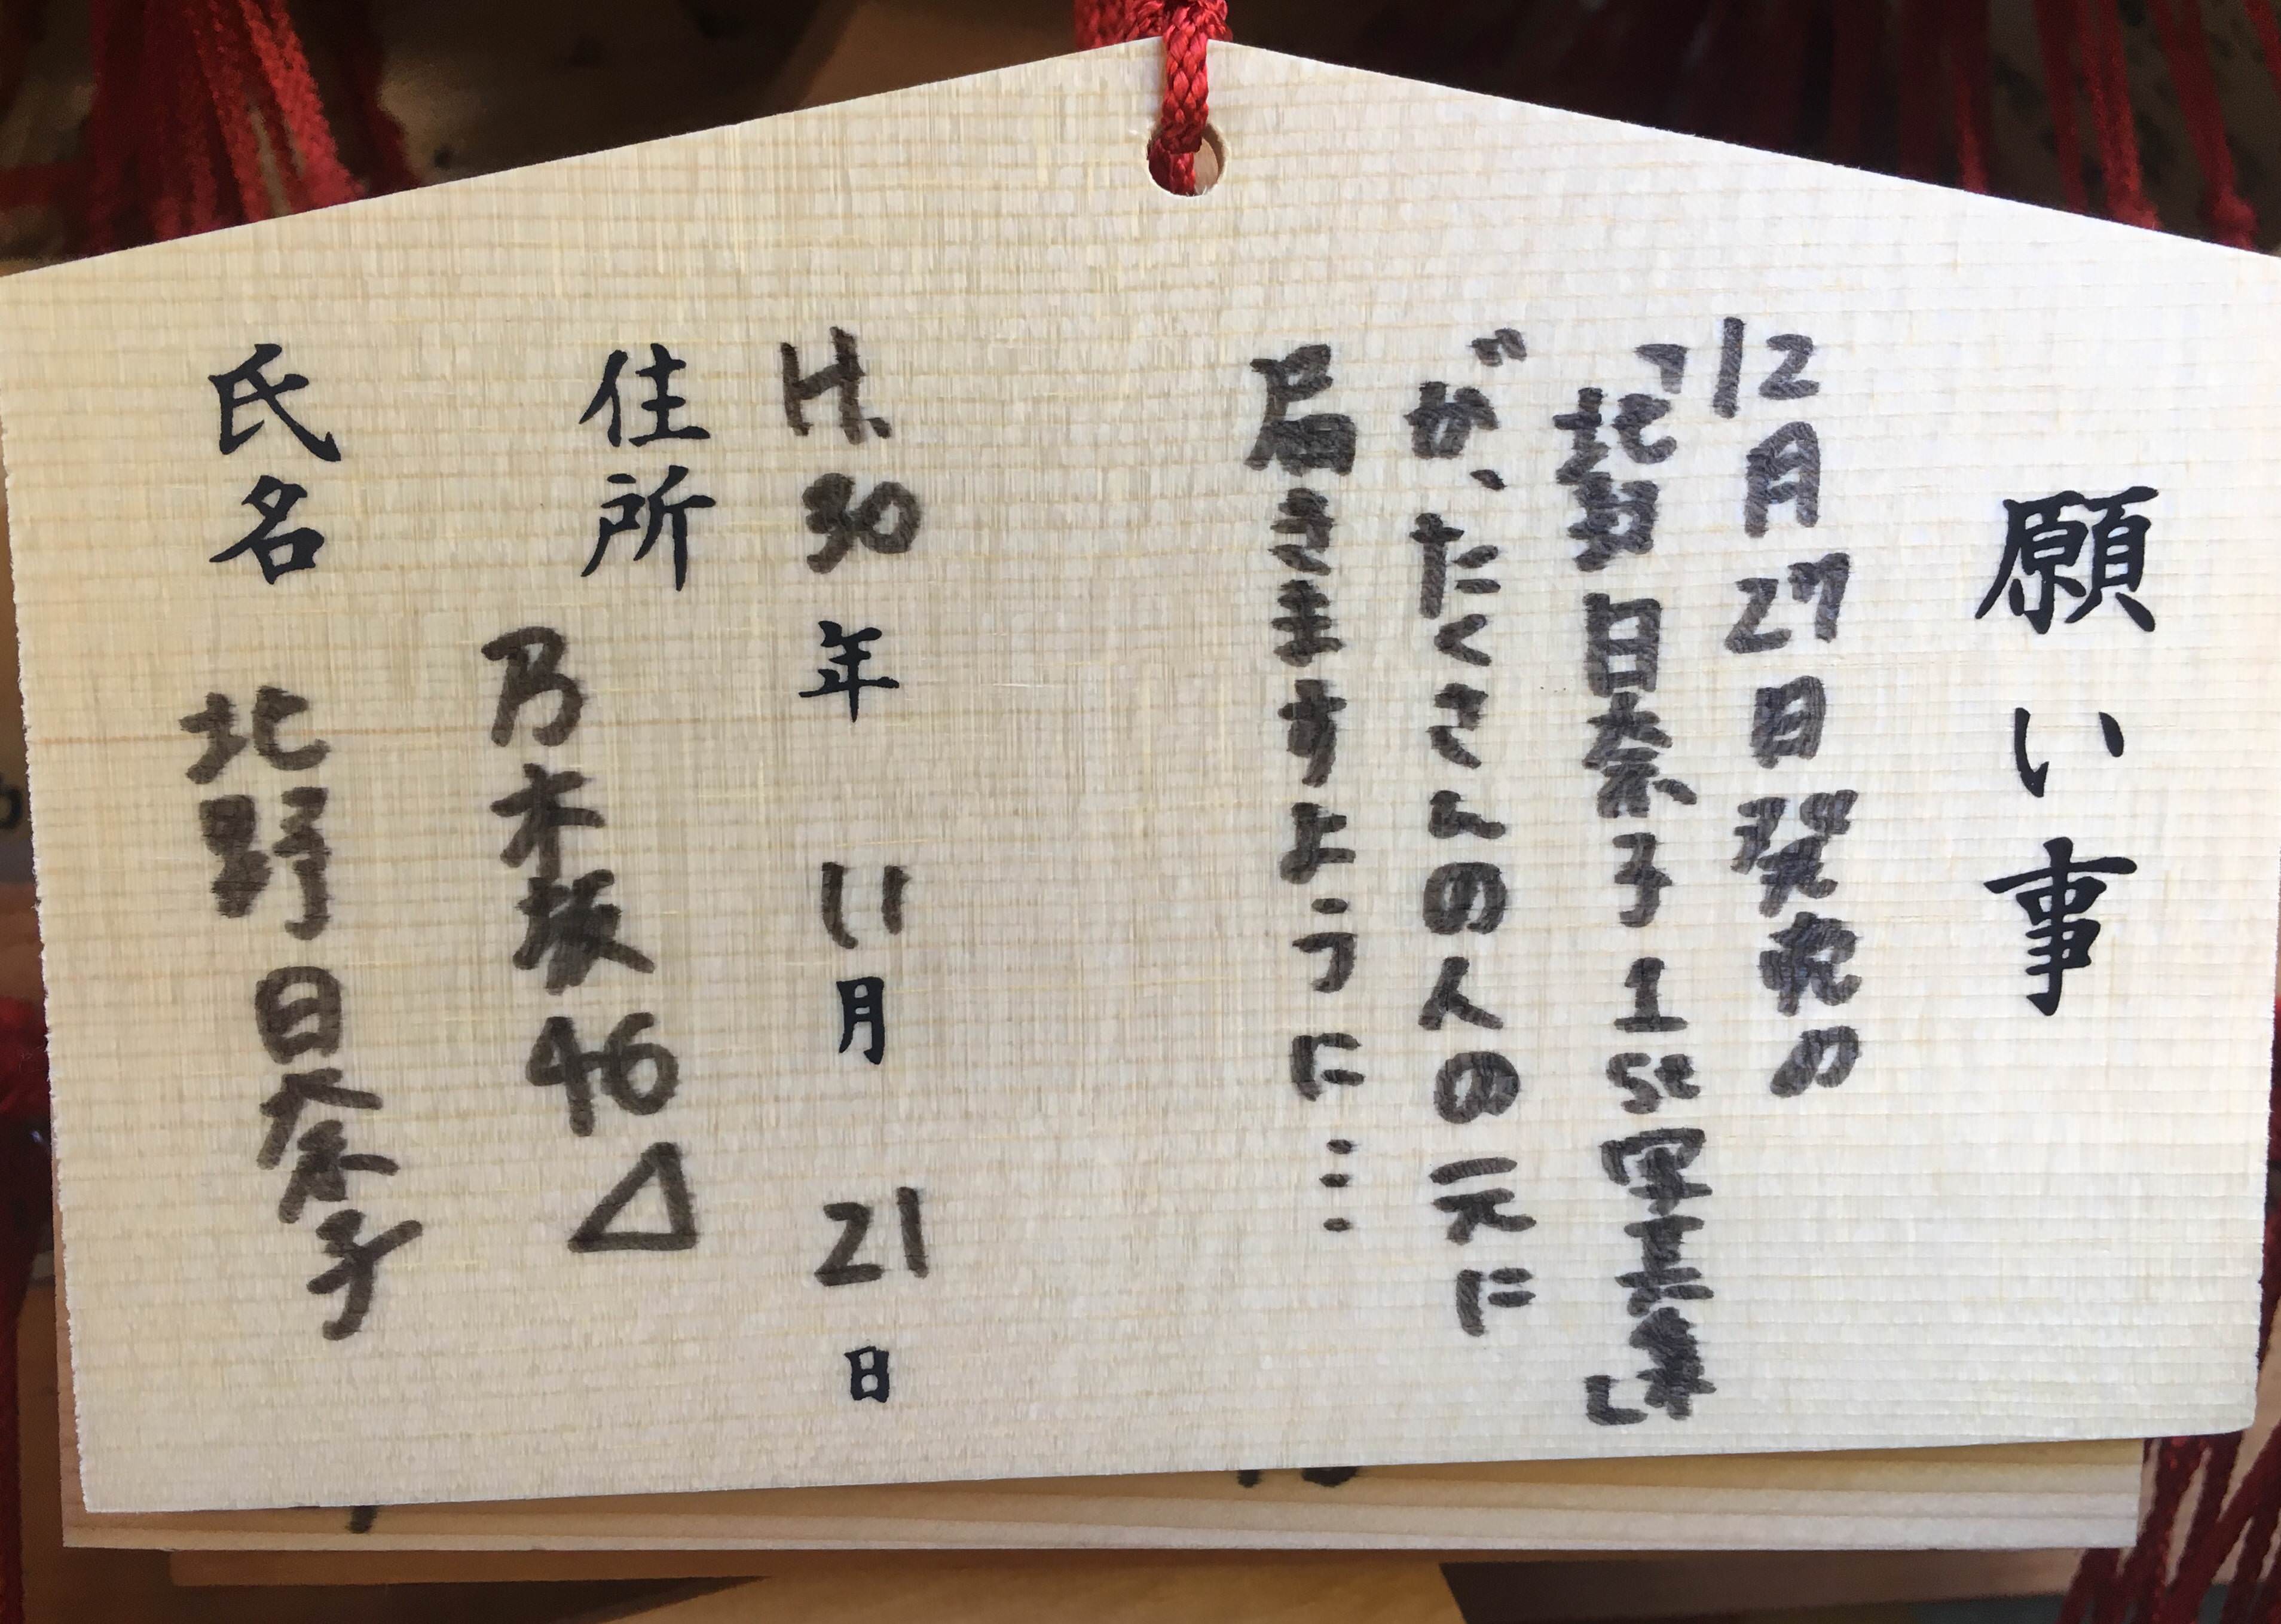 願い事
12月27日発売の
「北野日奈子1st写真集」
が、たくさんの人の元に
届きますように…
H.30年 11月 21日
住所 乃木坂46△
氏名 北野日奈子